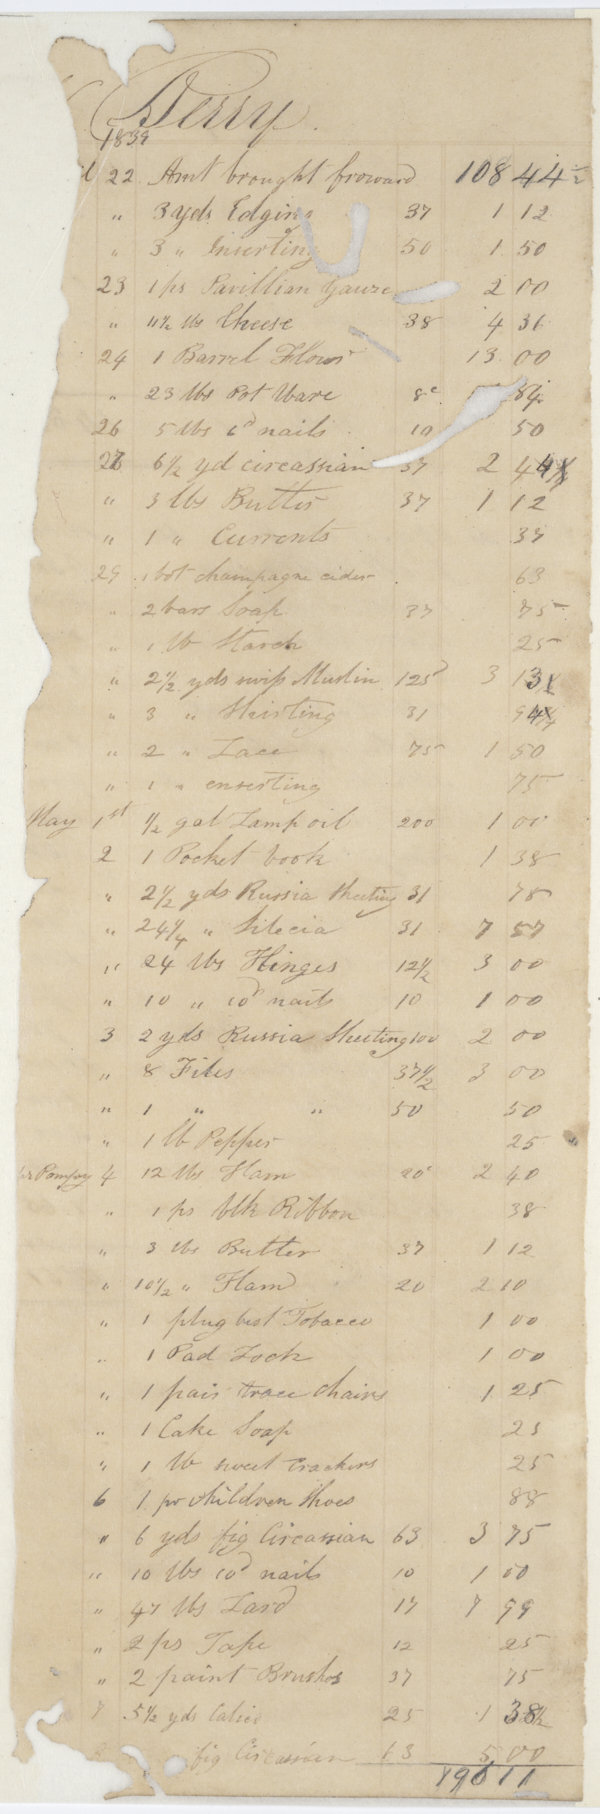 Derry.
1839
22 Amt brought froward 108 44 1/2
" 3 yds Edging 37 1 12
" 3 " Inserting 50 1 50
23 1 ps Pavillian Gauze 2 00
" 11 1/2 lbs Cheese 38 4 31
24 1 Barrel Flour 13 00
" 23 lbs Pot Ware 8c 84
26 5 lbs 6d nails 10 50
6 1/2 yd circassian 37 2 4
" 3 lbs Butter 37 1 12
" 1 " Currents 37
29 1 bot champagne cider 63
" 2 bars Soap 37 75
" 1 lb Starch 25
" 2 1/2 yds swiss Muslin 125 3 13
" 3 " Shirting 31 94
" 2 " Lace 75 1 50
" 1 " enserting 75
May 1st 1/2 gal Lamp oil 200 1 00
2 1 Pocket book 1 38
" 2 1/2 yds Russia Sheeting 31 78
" 24 1/4 " Silecia 31 7 57
" 24 lbs Hinges 12 1/2 3 00
" 10 " 10d nails 10 1 00
3 2 yds Russia Sheeting 100 2 00
" 8 Files 37 1/2 3 00
" 1 " " 50 50
" 1 lb Pepper 25
pr Pompey 4 12 lbs Ham 20 2 40
" 1 ps blk Ribbon 38
" 3 lbs Butter 37 1 12
" 10 1/2 " Ham 20 2 10
" 1 plug best Tobacco 1 00
" 1 Pad Lock 1 00
" 1 pair trace Chains 1 25
" 1 Cake Soap 25
" 1 lb sweet Crackers 25
6 1 pr children Shoes 88
" 6 yds fig Circassian 63 3 75
" 10 lbs 10d nails 10 1 00
" 47 lbs Lard 17 7 99
" 2 ps Tape 12 25
" 2 paint Brushes 37 75
7 5 1/2 yds Calico 25 1 38 1/2
fig Circassian 63 5 00
196 11